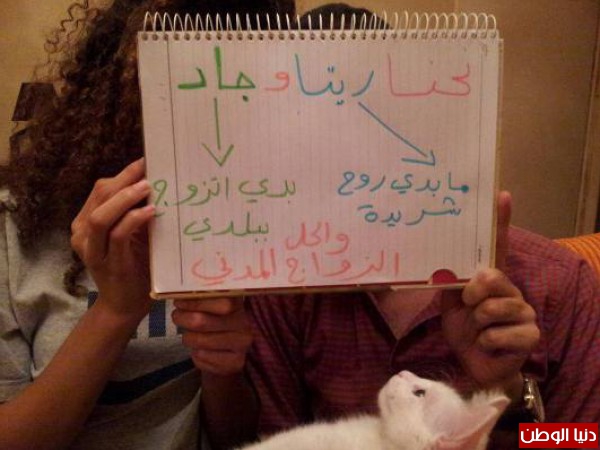 نحنا ريتا و جاد
ما بدي روح شريدة
بدي اتزوج ببلدي
والحل
الزواج المدني
دنيا الوطن